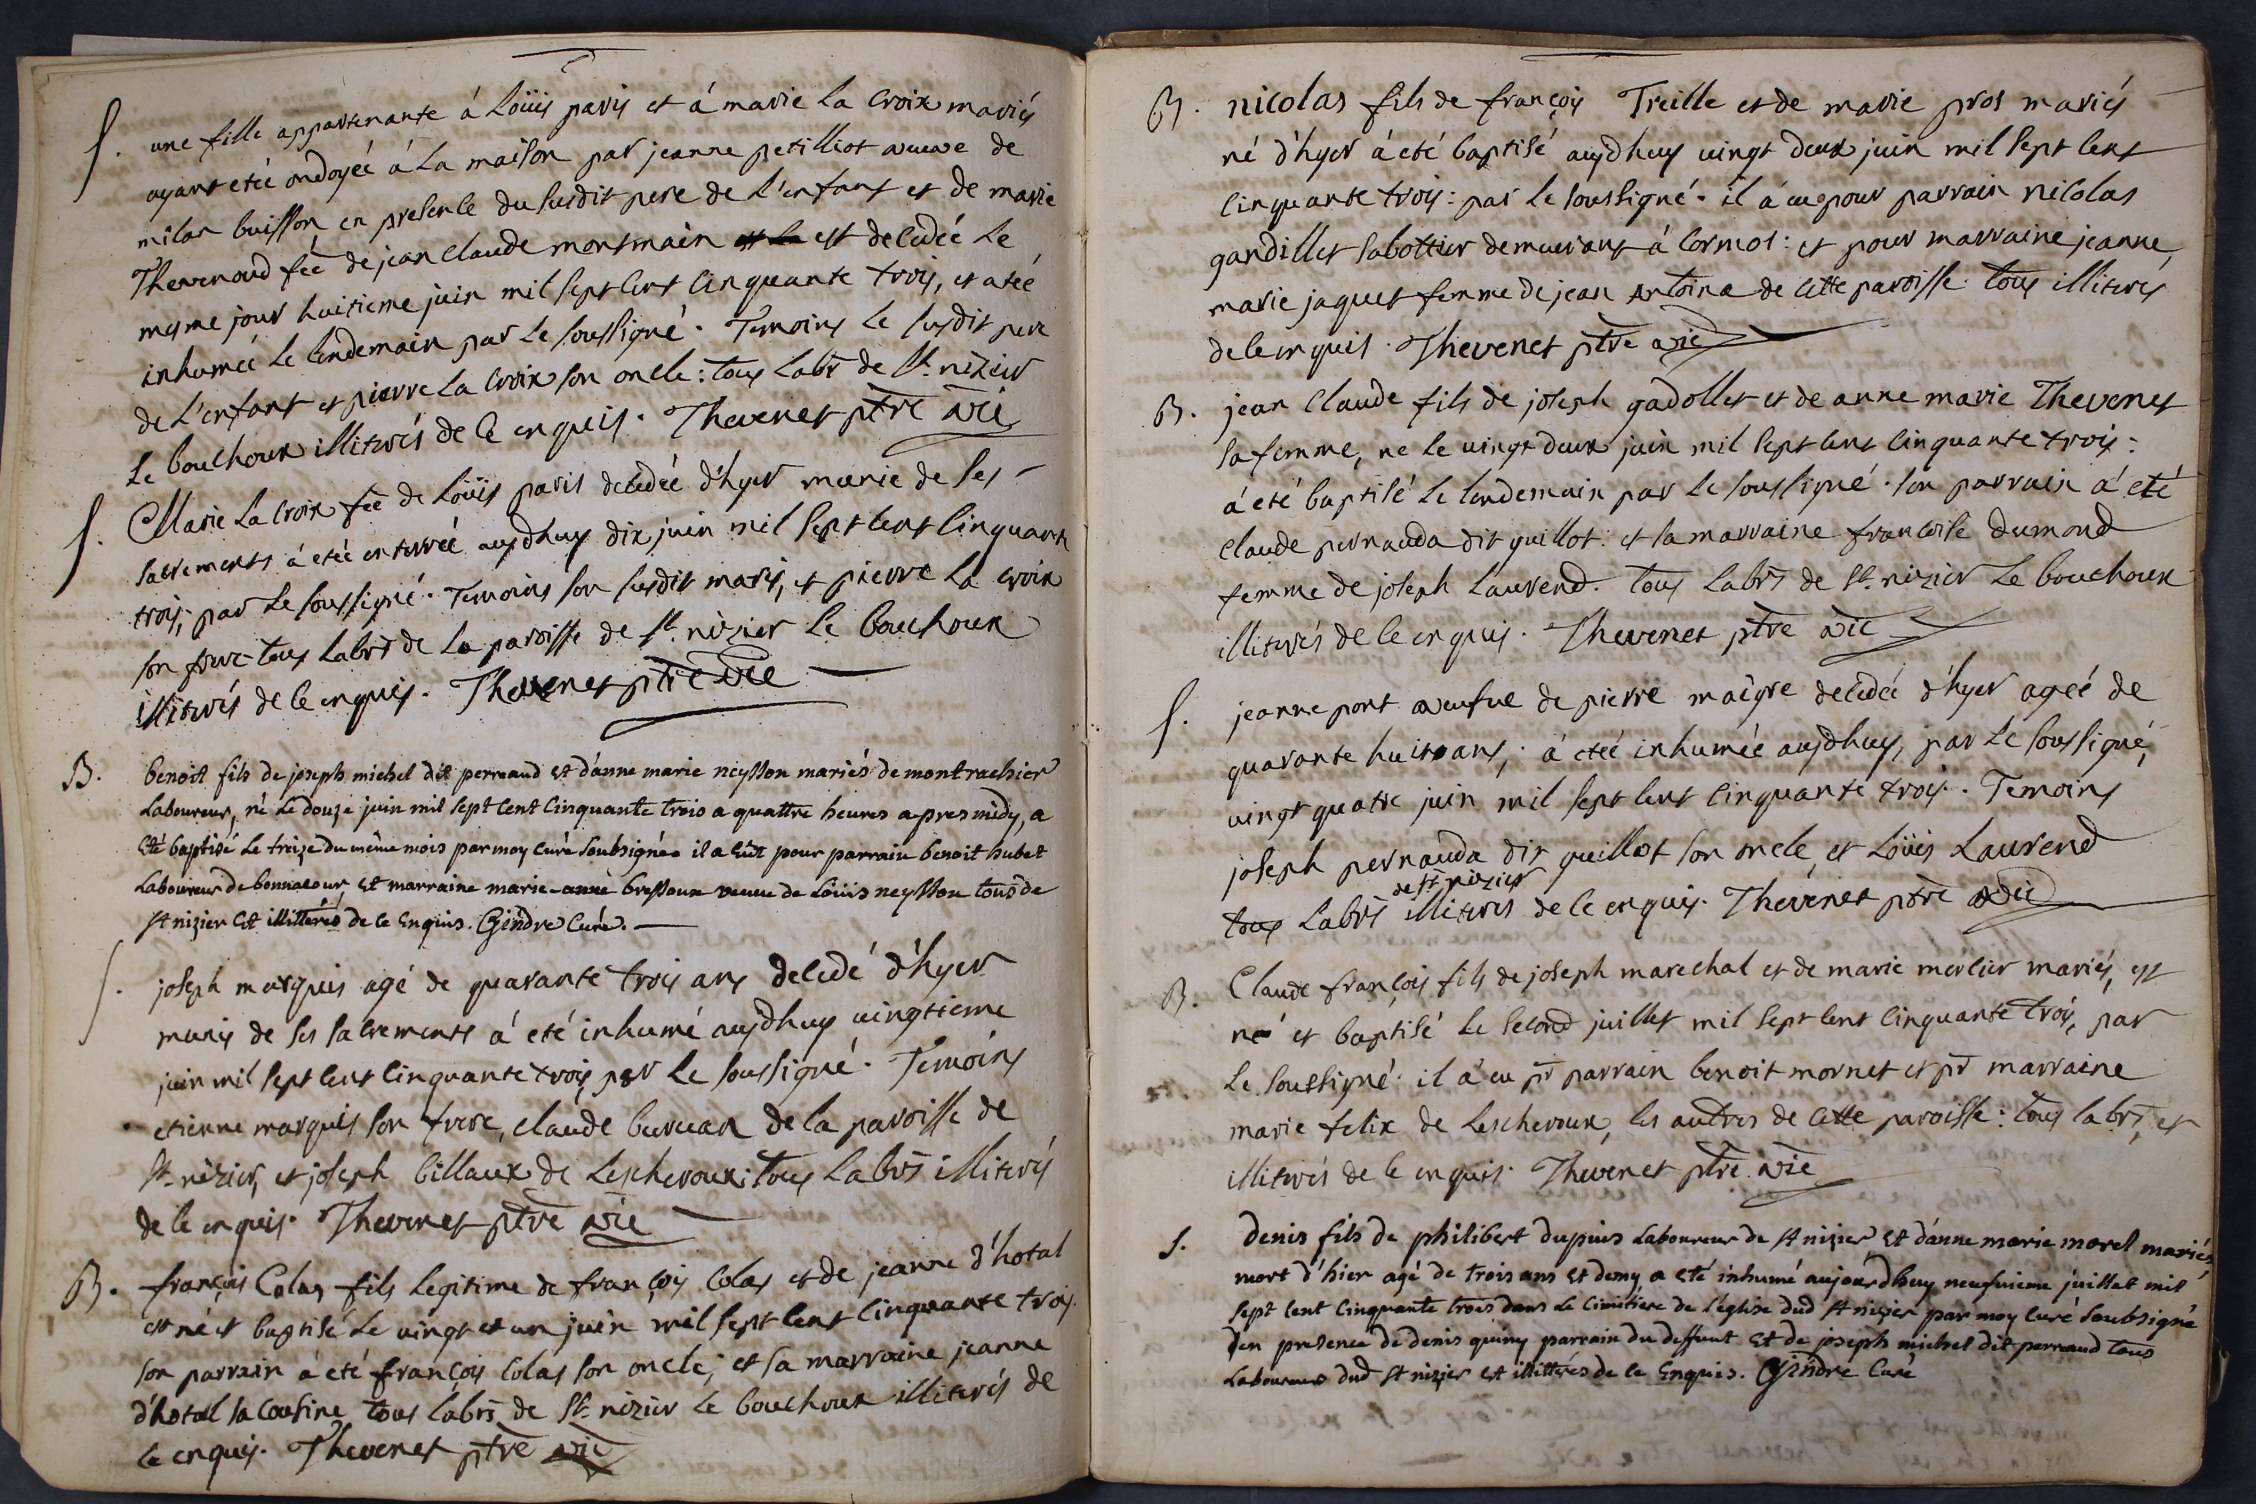 S. une fille appartenante á Loüis paris et á marie La Croix mariés
ayant etée ondoyée á La maison par jeanne petilliot veuve de
milan buisson en presence du susdit pere de L'enfant et de marie
Thevenoud fee de jean claude montmain est decedée Le
mesme jour huitieme juin mil sept cent cinquante trois, et a eté
inhumée Le lendemain par Le soussigné. Temoins Le susdit pere
de L'enfant et pierre La Croix son oncle: tous Labrs de St. nizier
Le bouchoux illiterés de ce enquis. Thevenet ptre vic
S. Marie La Croix fee de Loüis paris decedée d'hyer munie de ses
sacrements á etée enterrée aujdhuy dix juin mil sept cent cinquante
trois, par Le soussigné. Temoins son susdit mary, et pierre La croix
son frere tous Labrs de La paroisse de St. nizier Le bouchoux
illiterés de ce enquis. Thevenet ptre vic
B. benoit fils de joseph michel dit perraud et d'anne marie neysson mariés de montrachier
Laboureur, né Le douze juin mil sept cent cinquante trois a quattre heures apres midy, a
eté baptisé Le treize du même mois par moy curé soubsigné il a eüt pour parrain benoit hubet
Laboureur de bonnacour et marraine marie bressoux veuve de Loüis neysson tous de
St nizier et illitterés de ce enquis. Gindre Curé.
S. joseph marquis agé de quarante trois ans decedé d'hyer
munis de ses sacrements á eté inhumé aujdhuy vingtieme
juin mil sept cent cinquante trois par Le soussigné. Temoins
etienne marquis son frere, claude buvuan de la paroisse de
St. nizier, et joseph billaux de Lescheroux: tous Labrs illiterés
de ce enquis. Thevenet ptre vic
B. françois Colas fils legitime de françois colas et de jeanne d'hotal
est né et baptisé Le vingt et un juin mil sept cent cinquante trois.
son parrain á eté françois colas son oncle; et sa marraine jeanne
d'hotal sa cousine tous labrs de St. nizier Le bouchoux illiterés de
ce enquis. Thevenet ptre vic
B. nicolas fils de françois Treille et de marie pros mariés
né d'hyer á eté baptisé aujdhuy vingt deux juin mil sept cent
cinquante trois: par Le soussigné. il á eu pour parrain nicolas
gandillet sabottier demeurant á Cormos: et pour marraine jeanne
marie jaquet femme de jean Antoine de cette paroisse. tous illiterés
de ce enquis. Thevenet ptre vic
B. jean Claude fils de joseph gadollet et de anne marie Thevenet
sa femme, ne le vingt deux juin mil sept cent cinquante trois:
á eté baptisé Le lendemain par Le soussigné. son parrain á eté
claude pernauda dit guillot: et sa marraine francoise dumond
femme de joseph Laurend. tous Labrs de St. nizier Le bouchoux
illiterés de ce enquis. Thevenet ptre vic
S. jeanne pont veufve de pierre maigre decedée d'hyer ageé de
quarante huit ans; á eteé inhumée aujdhuy, par Le soussigné,
vingt quatre juin mil sept cent cinquante trois. Temoins
joseph pernauda dit guillot son oncle et Loüis Laurend
de St. nizier
tous Labrs illiterés de ce enquis. Thevenet ptre vic
B. Claude françois fils de joseph marechal et de marie mercier mariés, est
né et baptisé Le second juillet mil sept cent cinquante trois, par
Le soussigné. il á eu pr parrain benoit mornet et pr marraine
marie felix de Lescheroux, les autres de cette paroisse: tous labrs, et
illiterés de ce enquis. Thevenet ptre vic
S. denis fils de philibert dupuis Laboureur de St nizier et d'anne marie morel mariés
mort d'hier agé de trois ans et demy a eté inhumé aujourdhuy neufvieme juillet mil
sept cent cinquante trois dans Le cimitiere de L'eglise dud St nizier par moy curé soubsigné
en presence de denis quiny parrain du deffunt et de joseph michel dit perraud tous
Laboureurs dud St nizier et illitterés de ce enquis. Gindre Curé